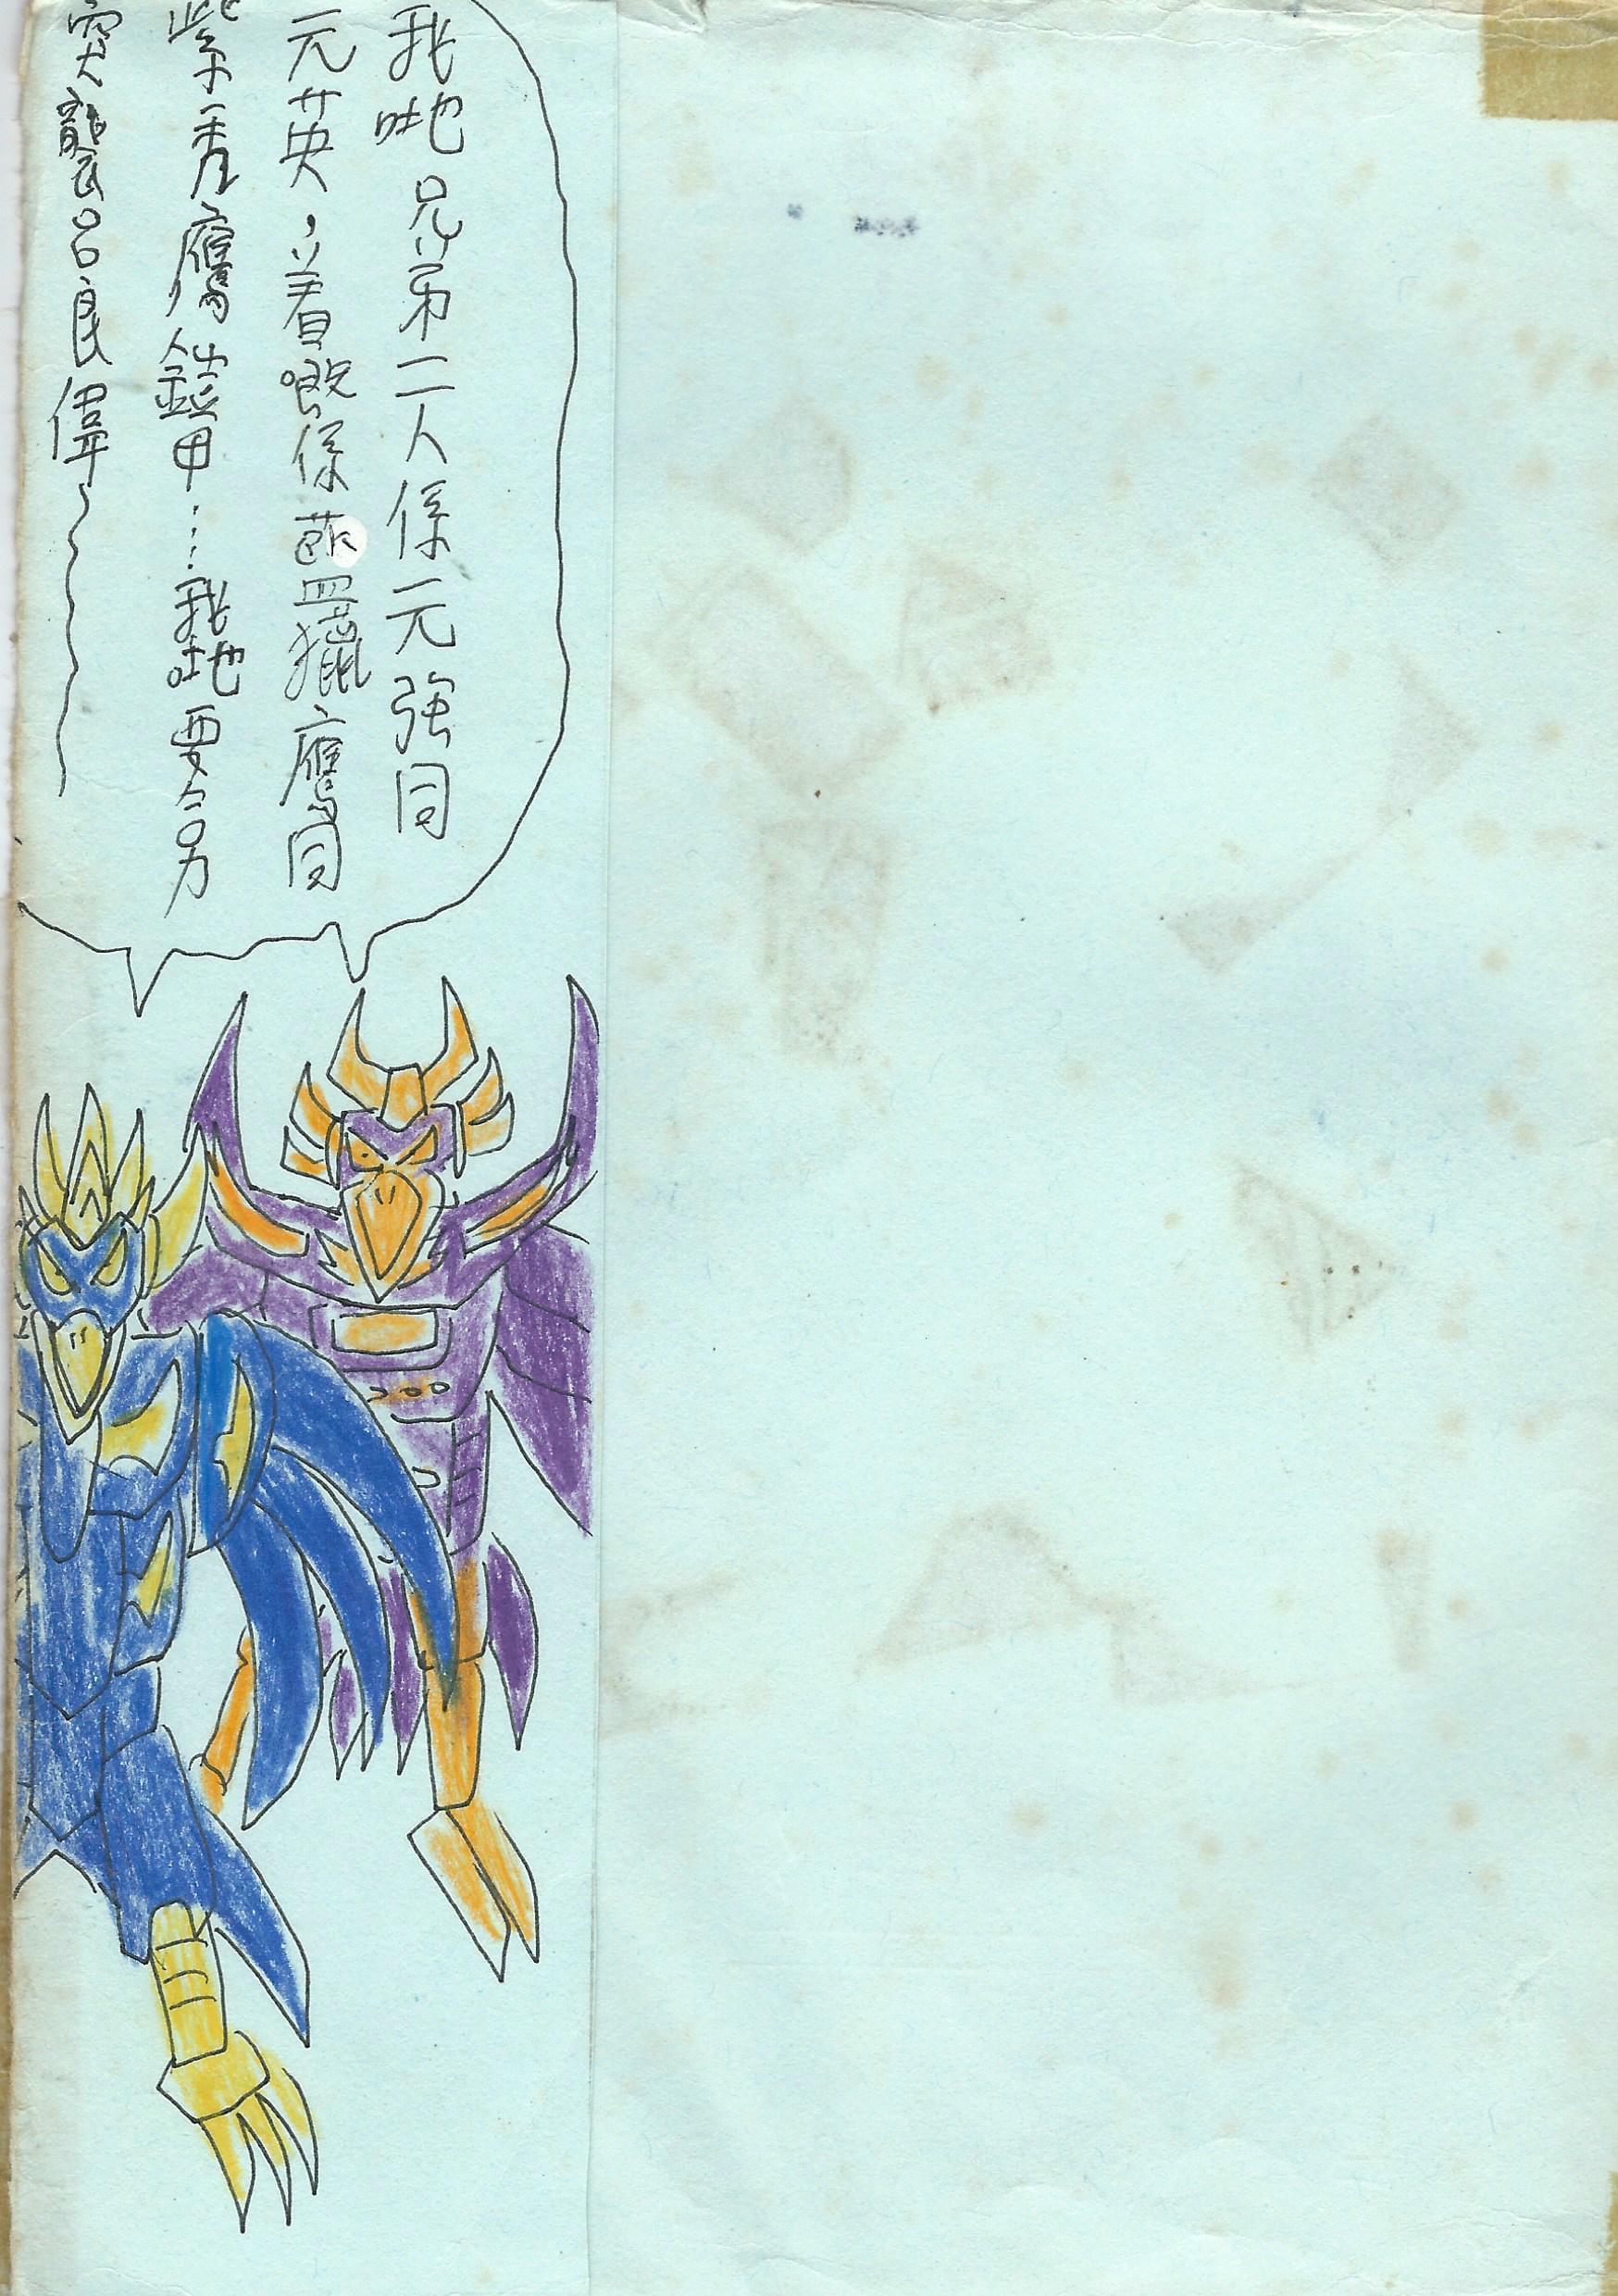 我哋兄弟二人係元強同
元英，着嘅係藍獵鷹同
紫秃鷹鎧甲……我哋要合力
突襲呂良偉～